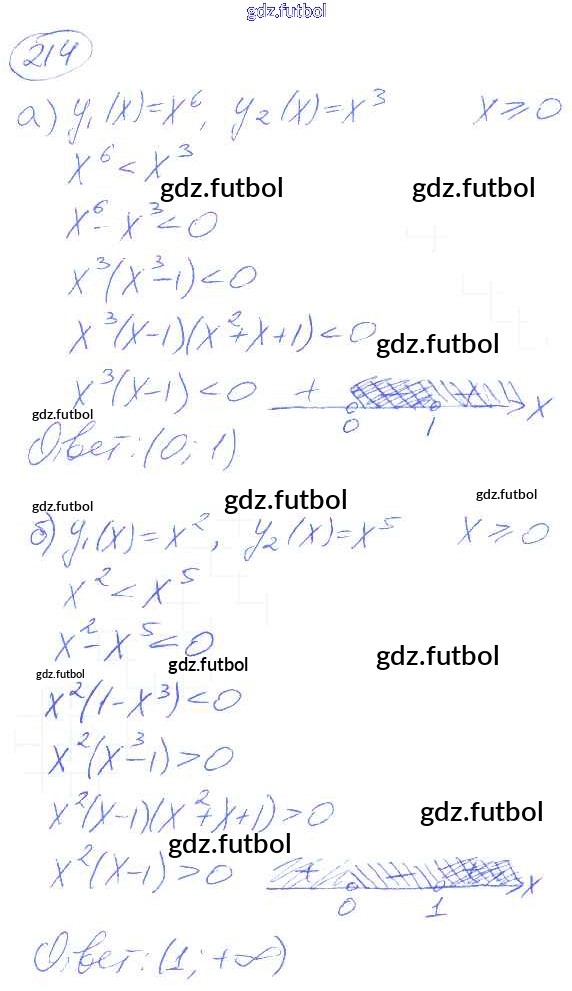 gdz.futbol
214
а) y₁(x)=x⁶, y₂(x)=x³ x⩾0
x⁶<x³
gdz.futbol gdz.futbol
x⁶-x³<0
x³(x³-1)<0
x³(x-1)(x²+x+1)<0
gdz.futbol
x³(x-1)<0 + - + x
gdz.futbol
0 1
Ответ: (0; 1)
gdz.futbol gdz.futbol gdz.futbol
б) y₁(x)=x², y₂(x)=x⁵ x⩾0
x²<x⁵
x²-x⁵<0
gdz.futbol gdz.futbol gdz.futbol
x²(1-x³)<0
x²(x³-1)>0
x²(x-1)(x²+x+1)>0
gdz.futbol
gdz.futbol
x²(x-1)>0 + - + x
0 1
Ответ: (1; +∞)